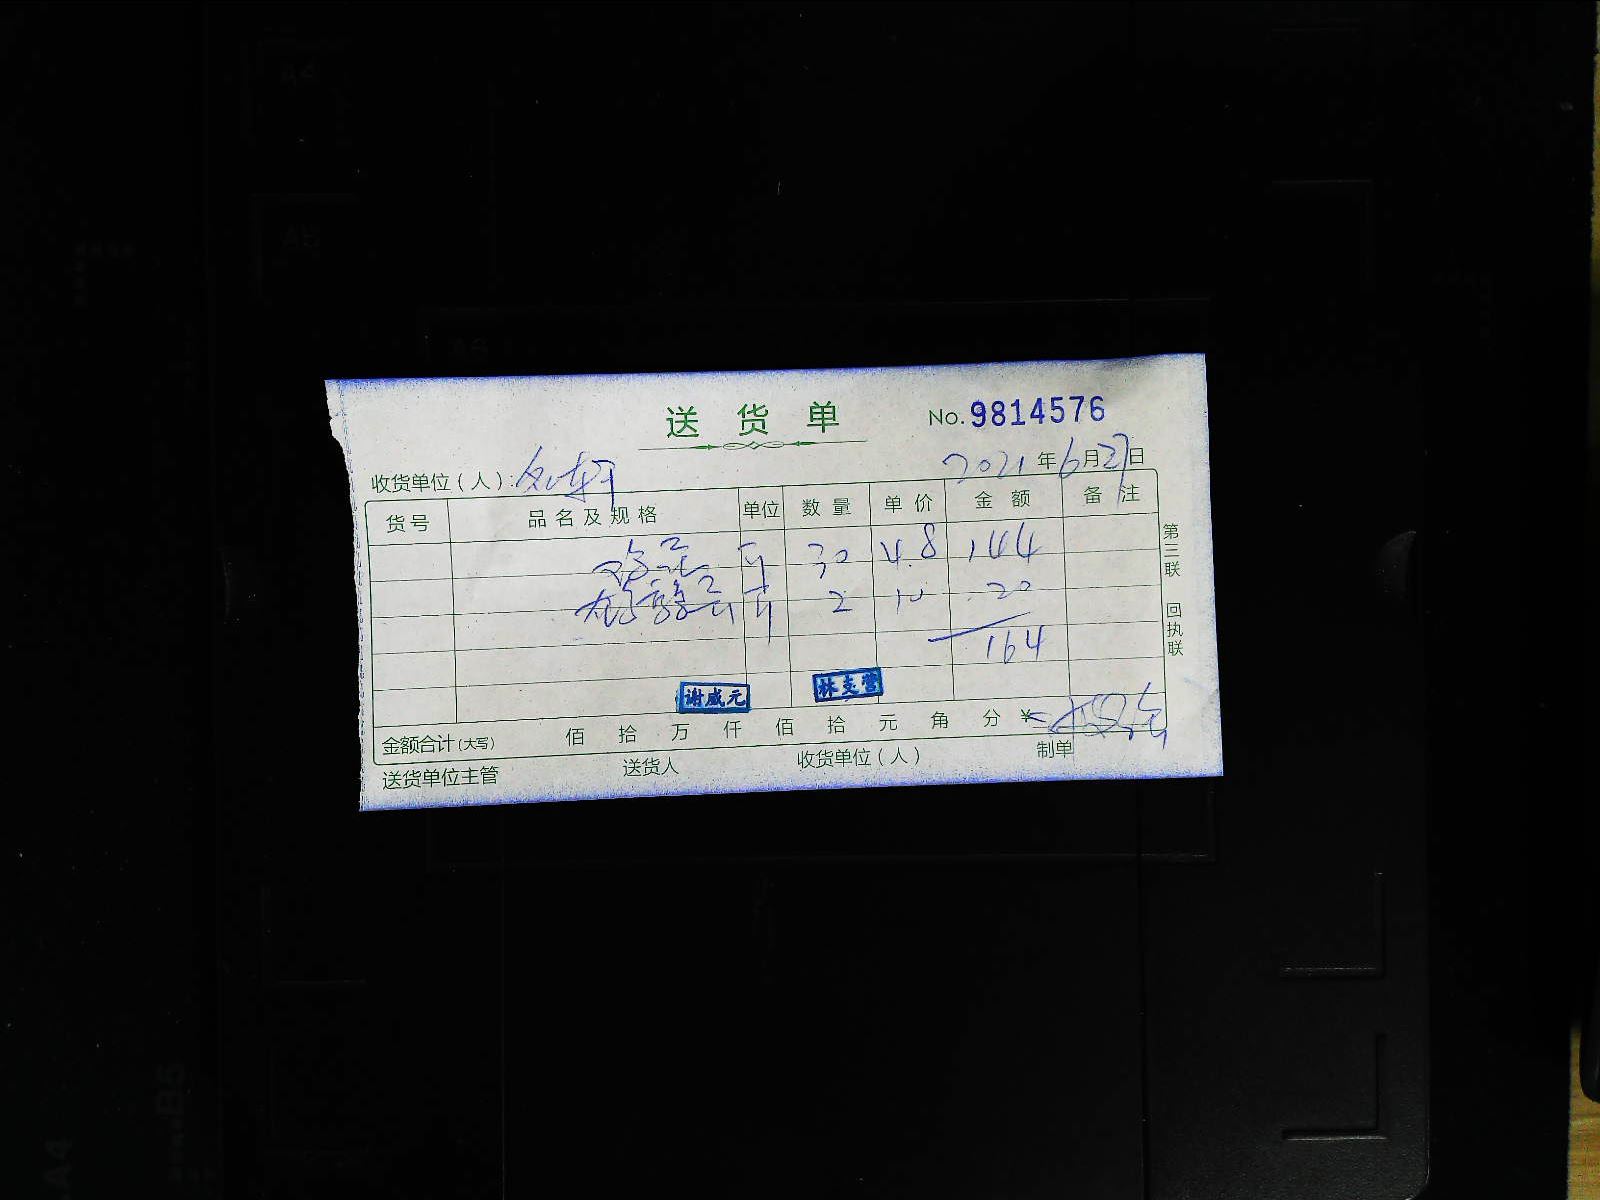 送货单 No. 9814576
收货单位（人）: 2021年6月27日
货号 品名及规格 单位 数量 单价 金额 备注
30 4.8 144
2 10 20
164
谢盛元 林支营
金额合计(大写) 佰 拾 万 仟 佰 拾 元 角 分 ¥
送货单位主管 送货人 收货单位（人） 制单
第三联 回执联
A4
A5
A6
B5
A4